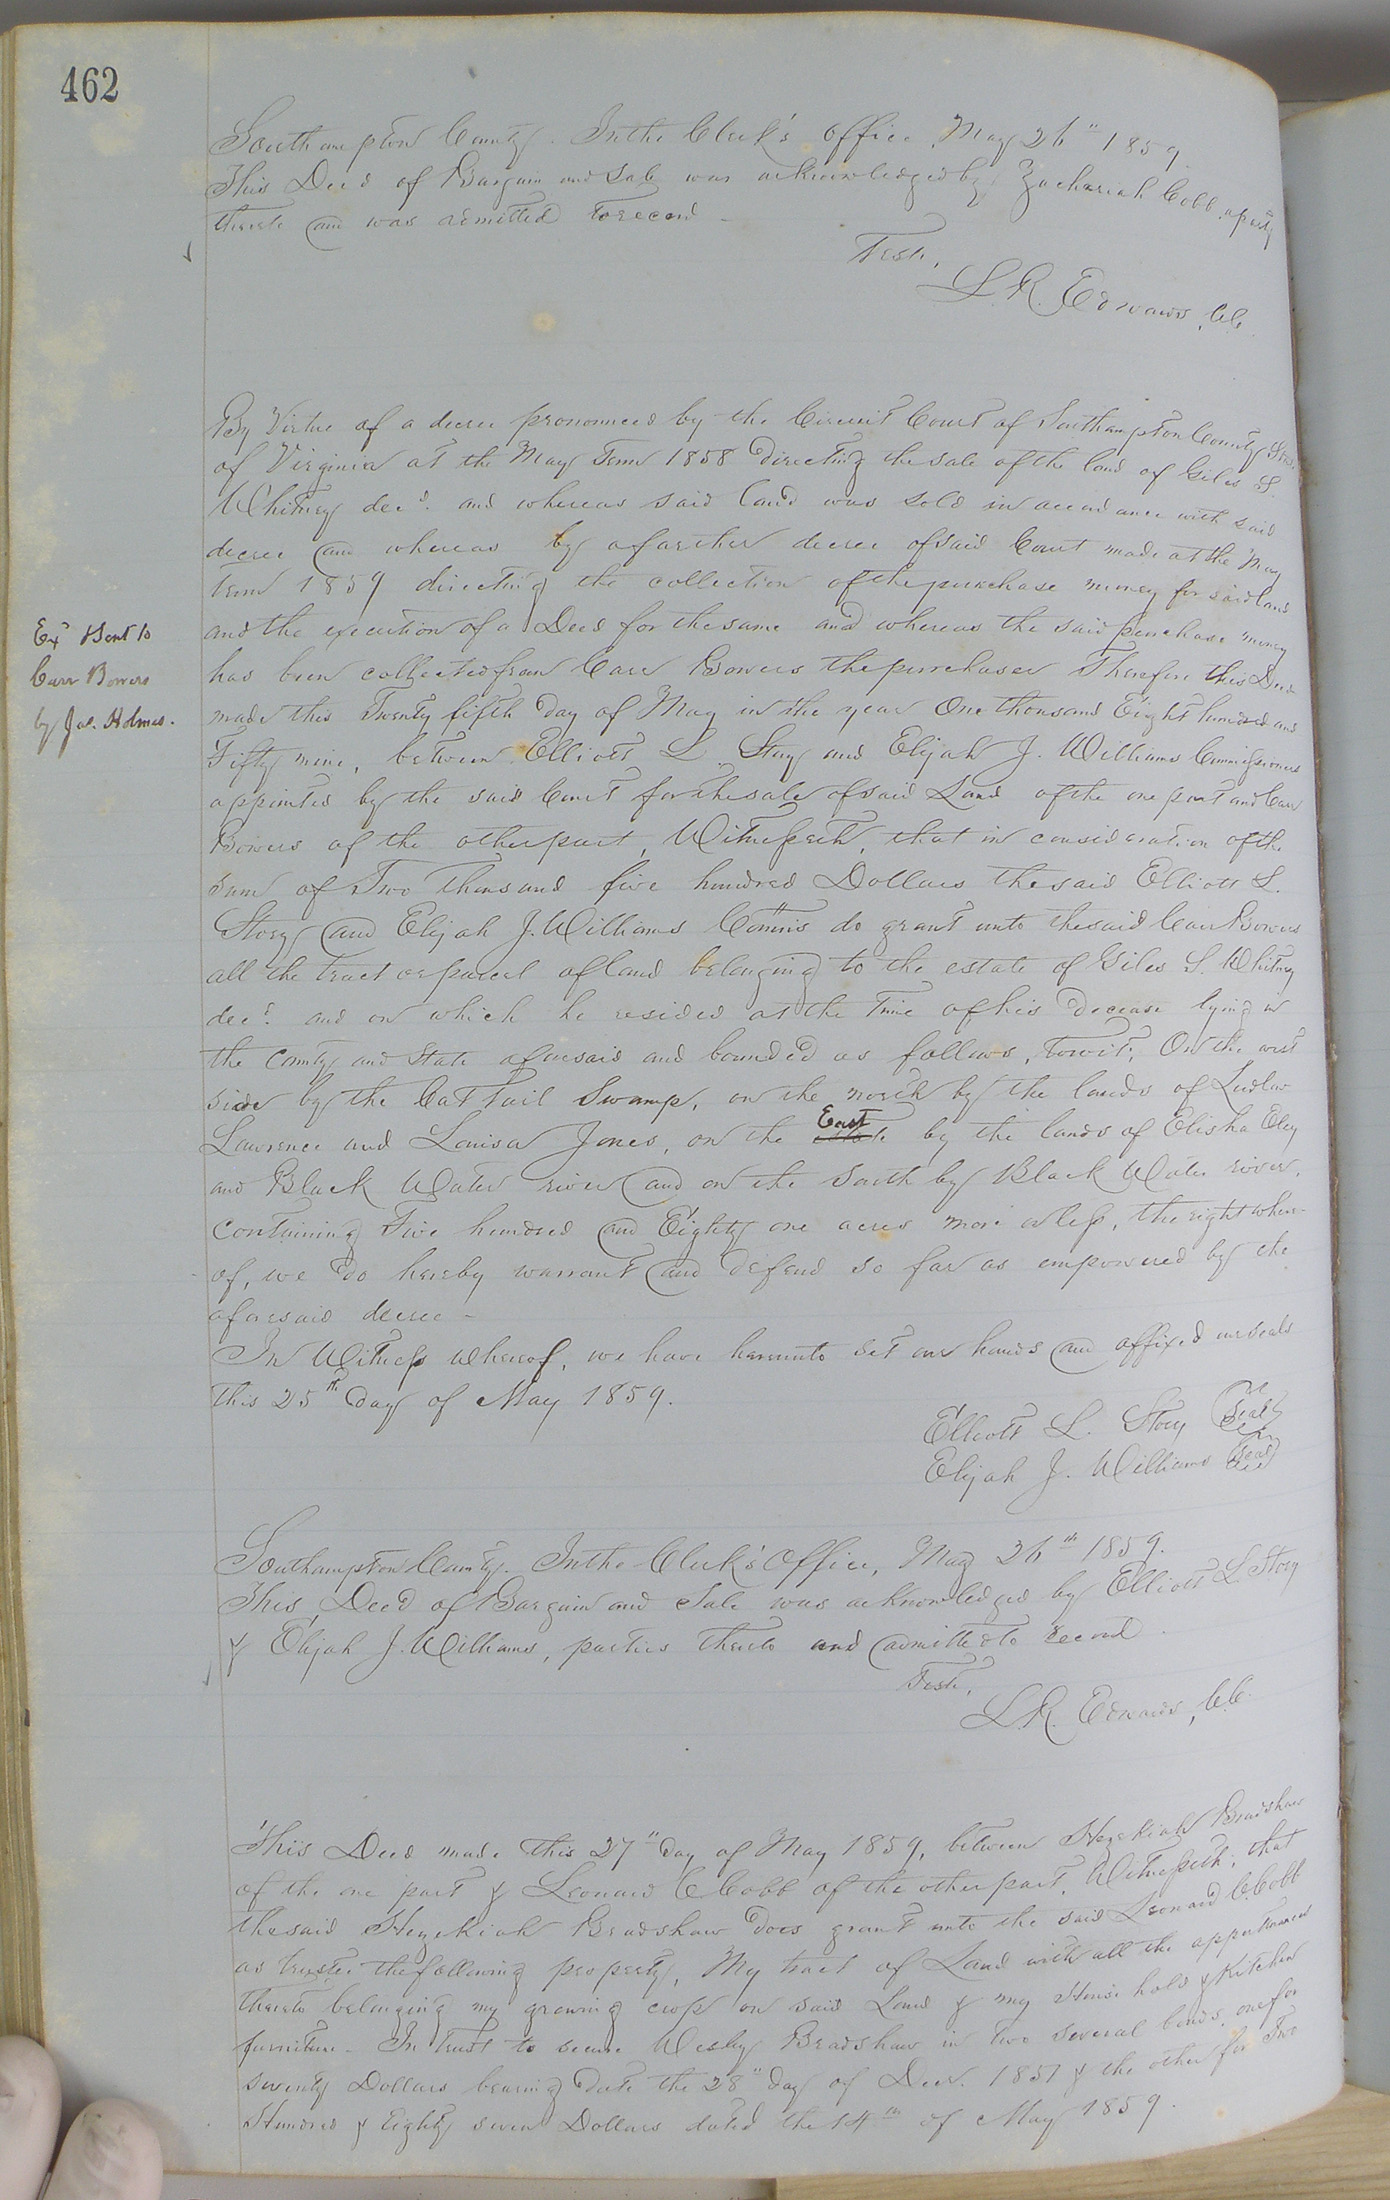 462
Southampton County. In the Clerk's Office May 26" 1859.
This Deed of Bargain and Sale was acknowledged by Zachariah Cobb a party
thereto and was admitted to record
Teste,
L. R. Edwards, C.C.
By Virtue of a decree pronounced by the Circuit Court of Southampton County State
of Virginia at the May Term 1858 directing the sale of the land of Giles S.
Whitney decd. and whereas said land was sold in accordance with said
decree and whereas by a farther decree of said Court made at the May
term 1859 directing the collection of the purchase money for said land
and the execution of a Deed for the same and whereas the said purchase money
has been collected from Carr Bowers the purchaser Therefore this Deed
made this Twenty fifth day of May in the year One thousand Eight hundred and
Fifty nine, between Elliott L. Story and Elijah J. Williams Commissioners
appointed by the said Court for the sale of said Land of the one part and Carr
Bowers of the other part, Witnesseth, that in consideration of the
sum of Two Thousand five hundred Dollars the said Elliott L.
Story and Elijah J. Williams Comms do grant unto the said Carr Bowers
all the tract or parcel of land belonging to the estate of Giles S. Whitney
decd. and on which he resided at the Time of his Decease lying in
the County and State aforesaid and bounded as follows, towit; On the west
side by the Cat Tail Swamp, on the north by the lands of Ludlow
Lawrence and Louisa Jones, on the East by the lands of Elisha Eley
and Black Water river and on the South by Black Water river,
containing Five hundred and Eighty one acres more or less, the right where-
of, we do hereby warrant and defend so far as empowered by the
aforesaid decree -
In Witness whereof, we have hereunto set our hands and affixed our seals
this 25th day of May 1859.
Elliott L. Story Seal
Elijah J. Williams Seal
Ex'd & Sent to
Carr Bowers
by Jas. Holmes.
Southampton County. In the Clerk's Office, May 26th 1859.
This Deed of Bargain and Sale was acknowledged by Elliott L. Story
& Elijah J. Williams, parties thereto and admitted to record.
Teste,
L. R. Edwards, C.C.
This Deed made this 27" day of May 1859, between Hezekiah Bradshaw
of the one part & Leonard C Cobb of the other part. Witnesseth; that
the said Hezekiah Bradshaw does grant unto the said Leonard C. Cobb
as trustee the following property, My tract of Land with all the appurtenances
thereto belonging my growing crop on said Land & my House hold & Kitchen
furniture - In trust to secure Wesley Bradshaw in two several bonds, one for
seventy Dollars bearing date the 28" day of Decr. 1857 & the other for Two
Hundred & Eighty seven Dollars dated the 14th of May 1859.